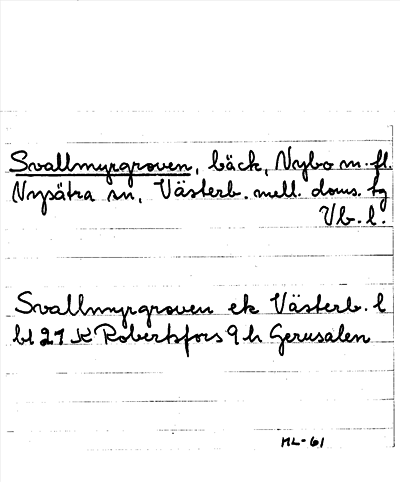 Svallmyrgroven, bäck, Nybo m.fl.
Nysätra sn, Västerb. mell. doms. tg
Vb. l.
Svallmyrgroven ek Västerb. l
bl 27 K Robertsfors 9 h Gerusalen
ML-61